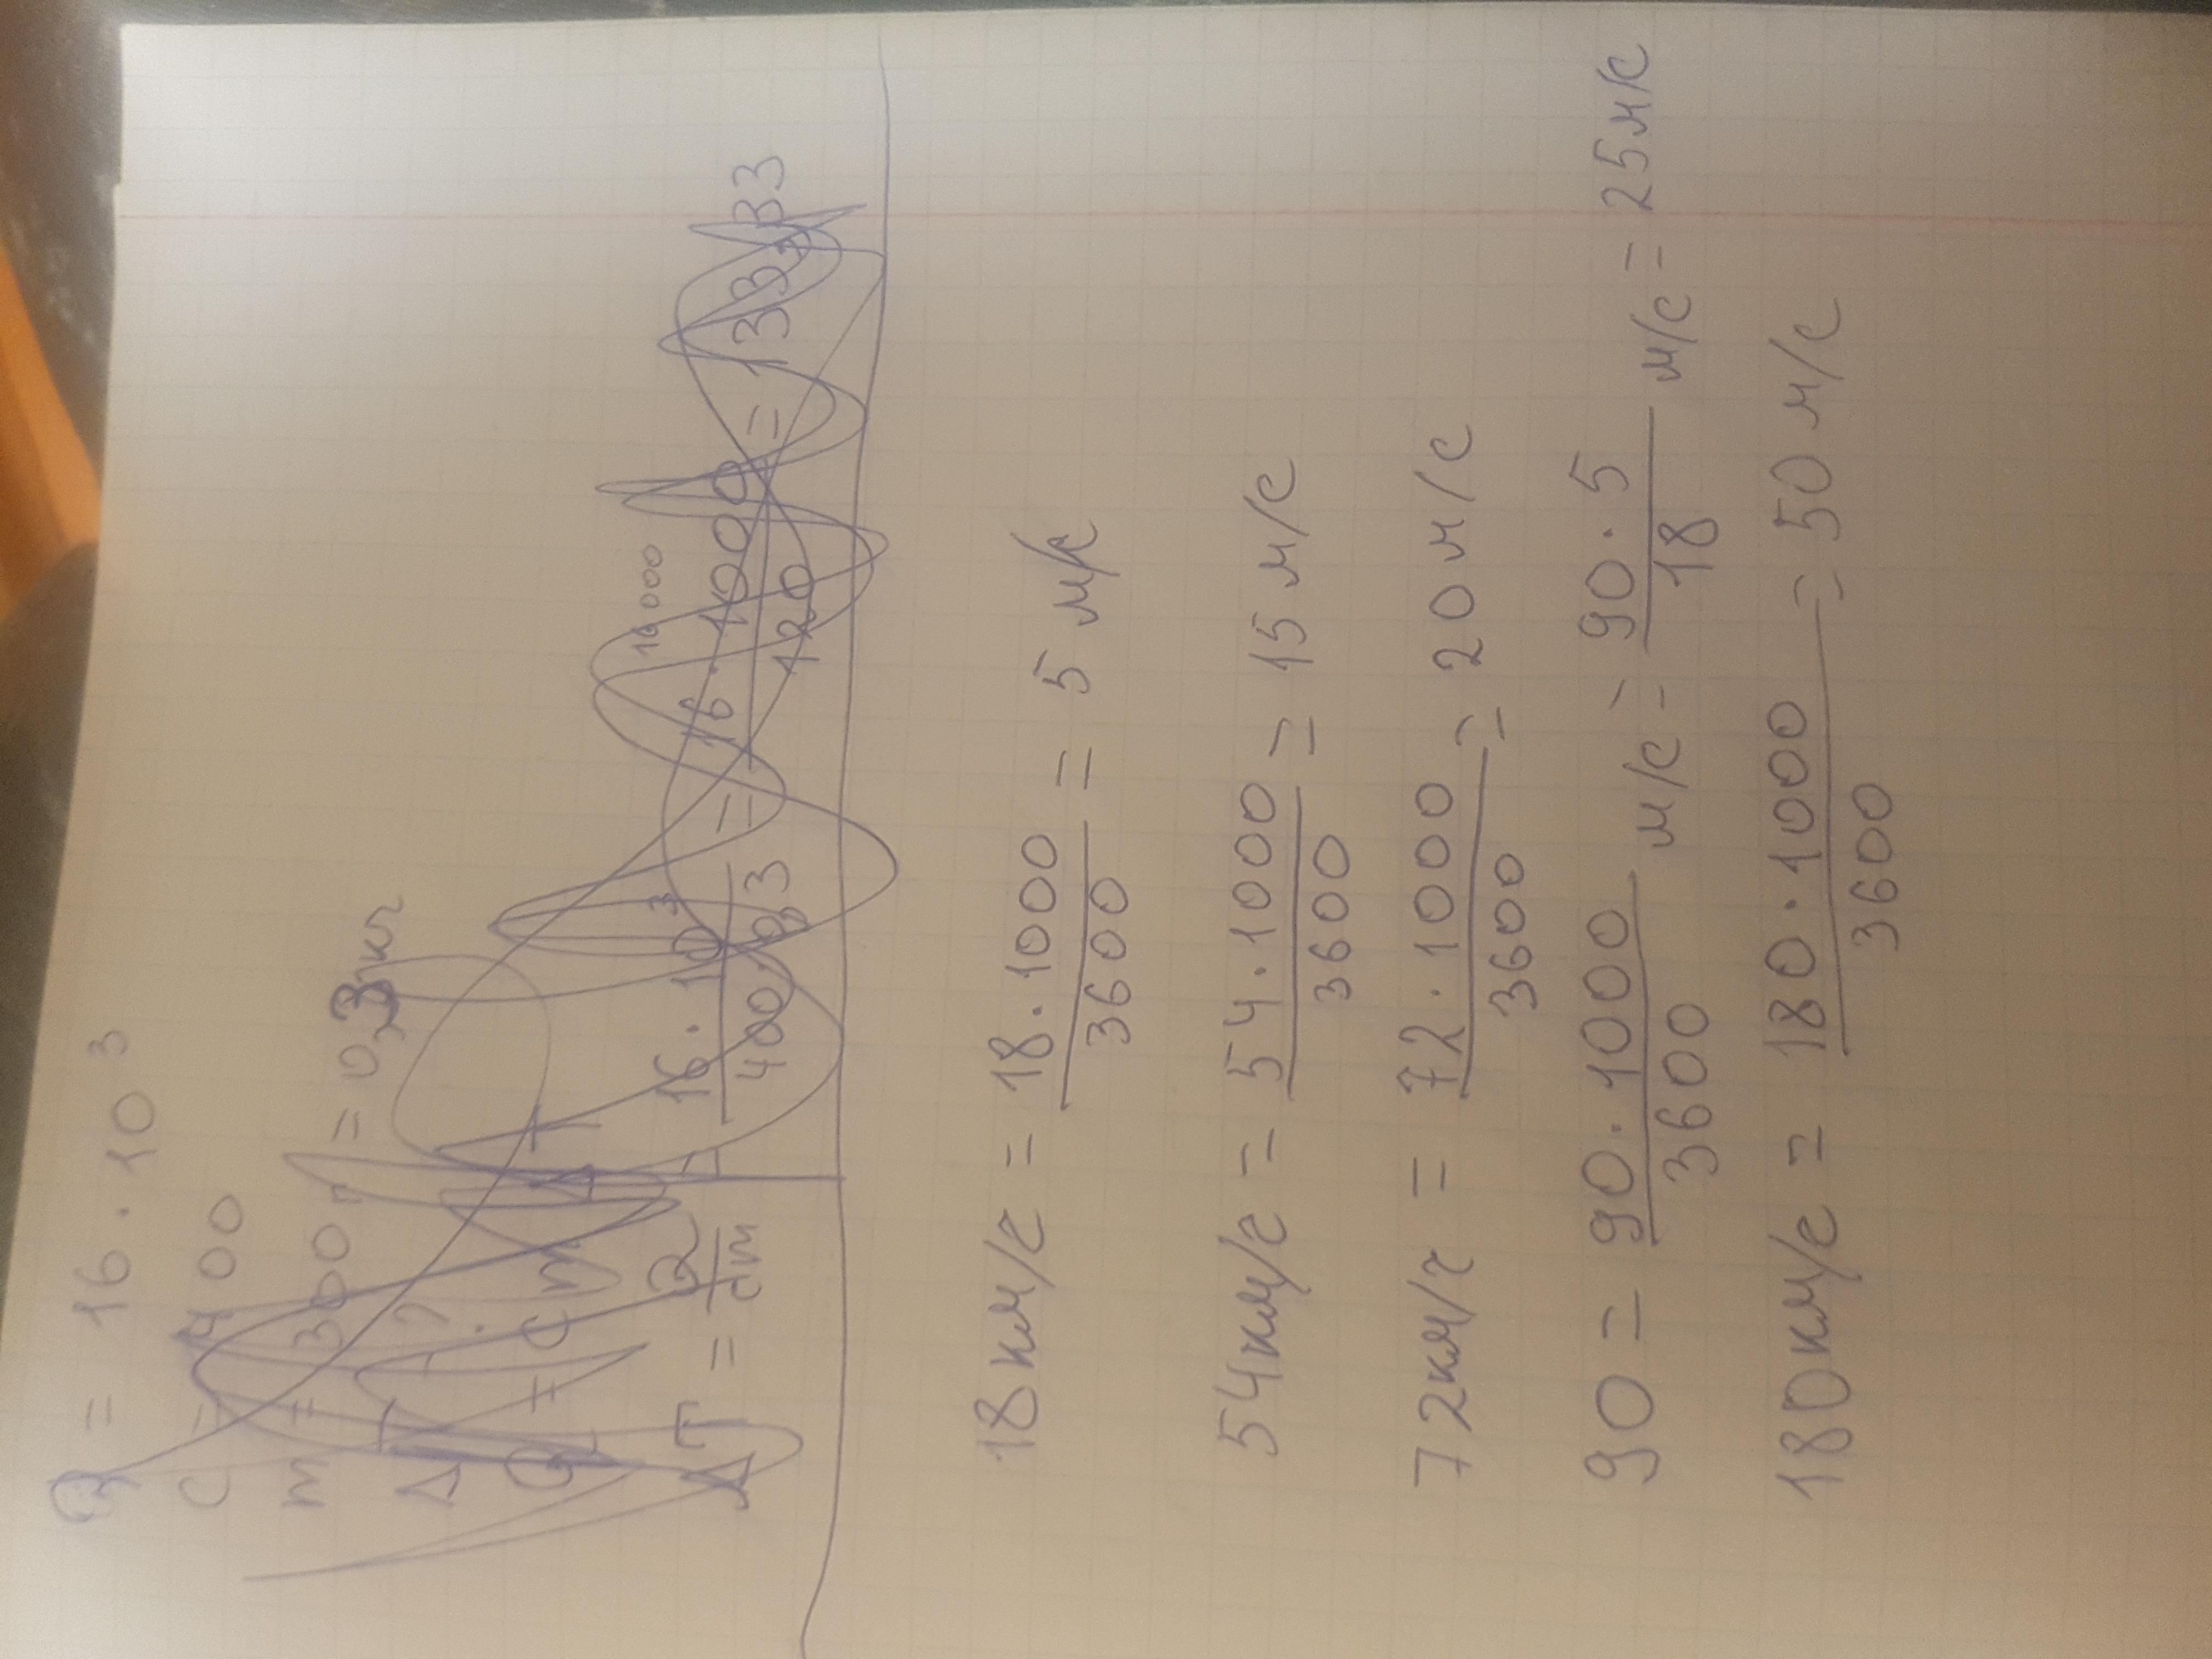 Q = 16 · 10³
c = 400
m = 300 г = 0,3 кг
ΔT = ?
Q = cmΔT
ΔT = Q/cm = 16 · 10³/400 · 0,3 = 16 · 1000/120 = 133,33
16 000
18 км/г = 18 · 1000/3600 = 5 м/с
54 км/г = 54 · 1000/3600 = 15 м/с
72 км/г = 72 · 1000/3600 = 20 м/с
90 = 90 · 1000/3600 м/с = 90 · 5/18 м/с = 25 м/с
180 км/г = 180 · 1000/3600 = 50 м/с